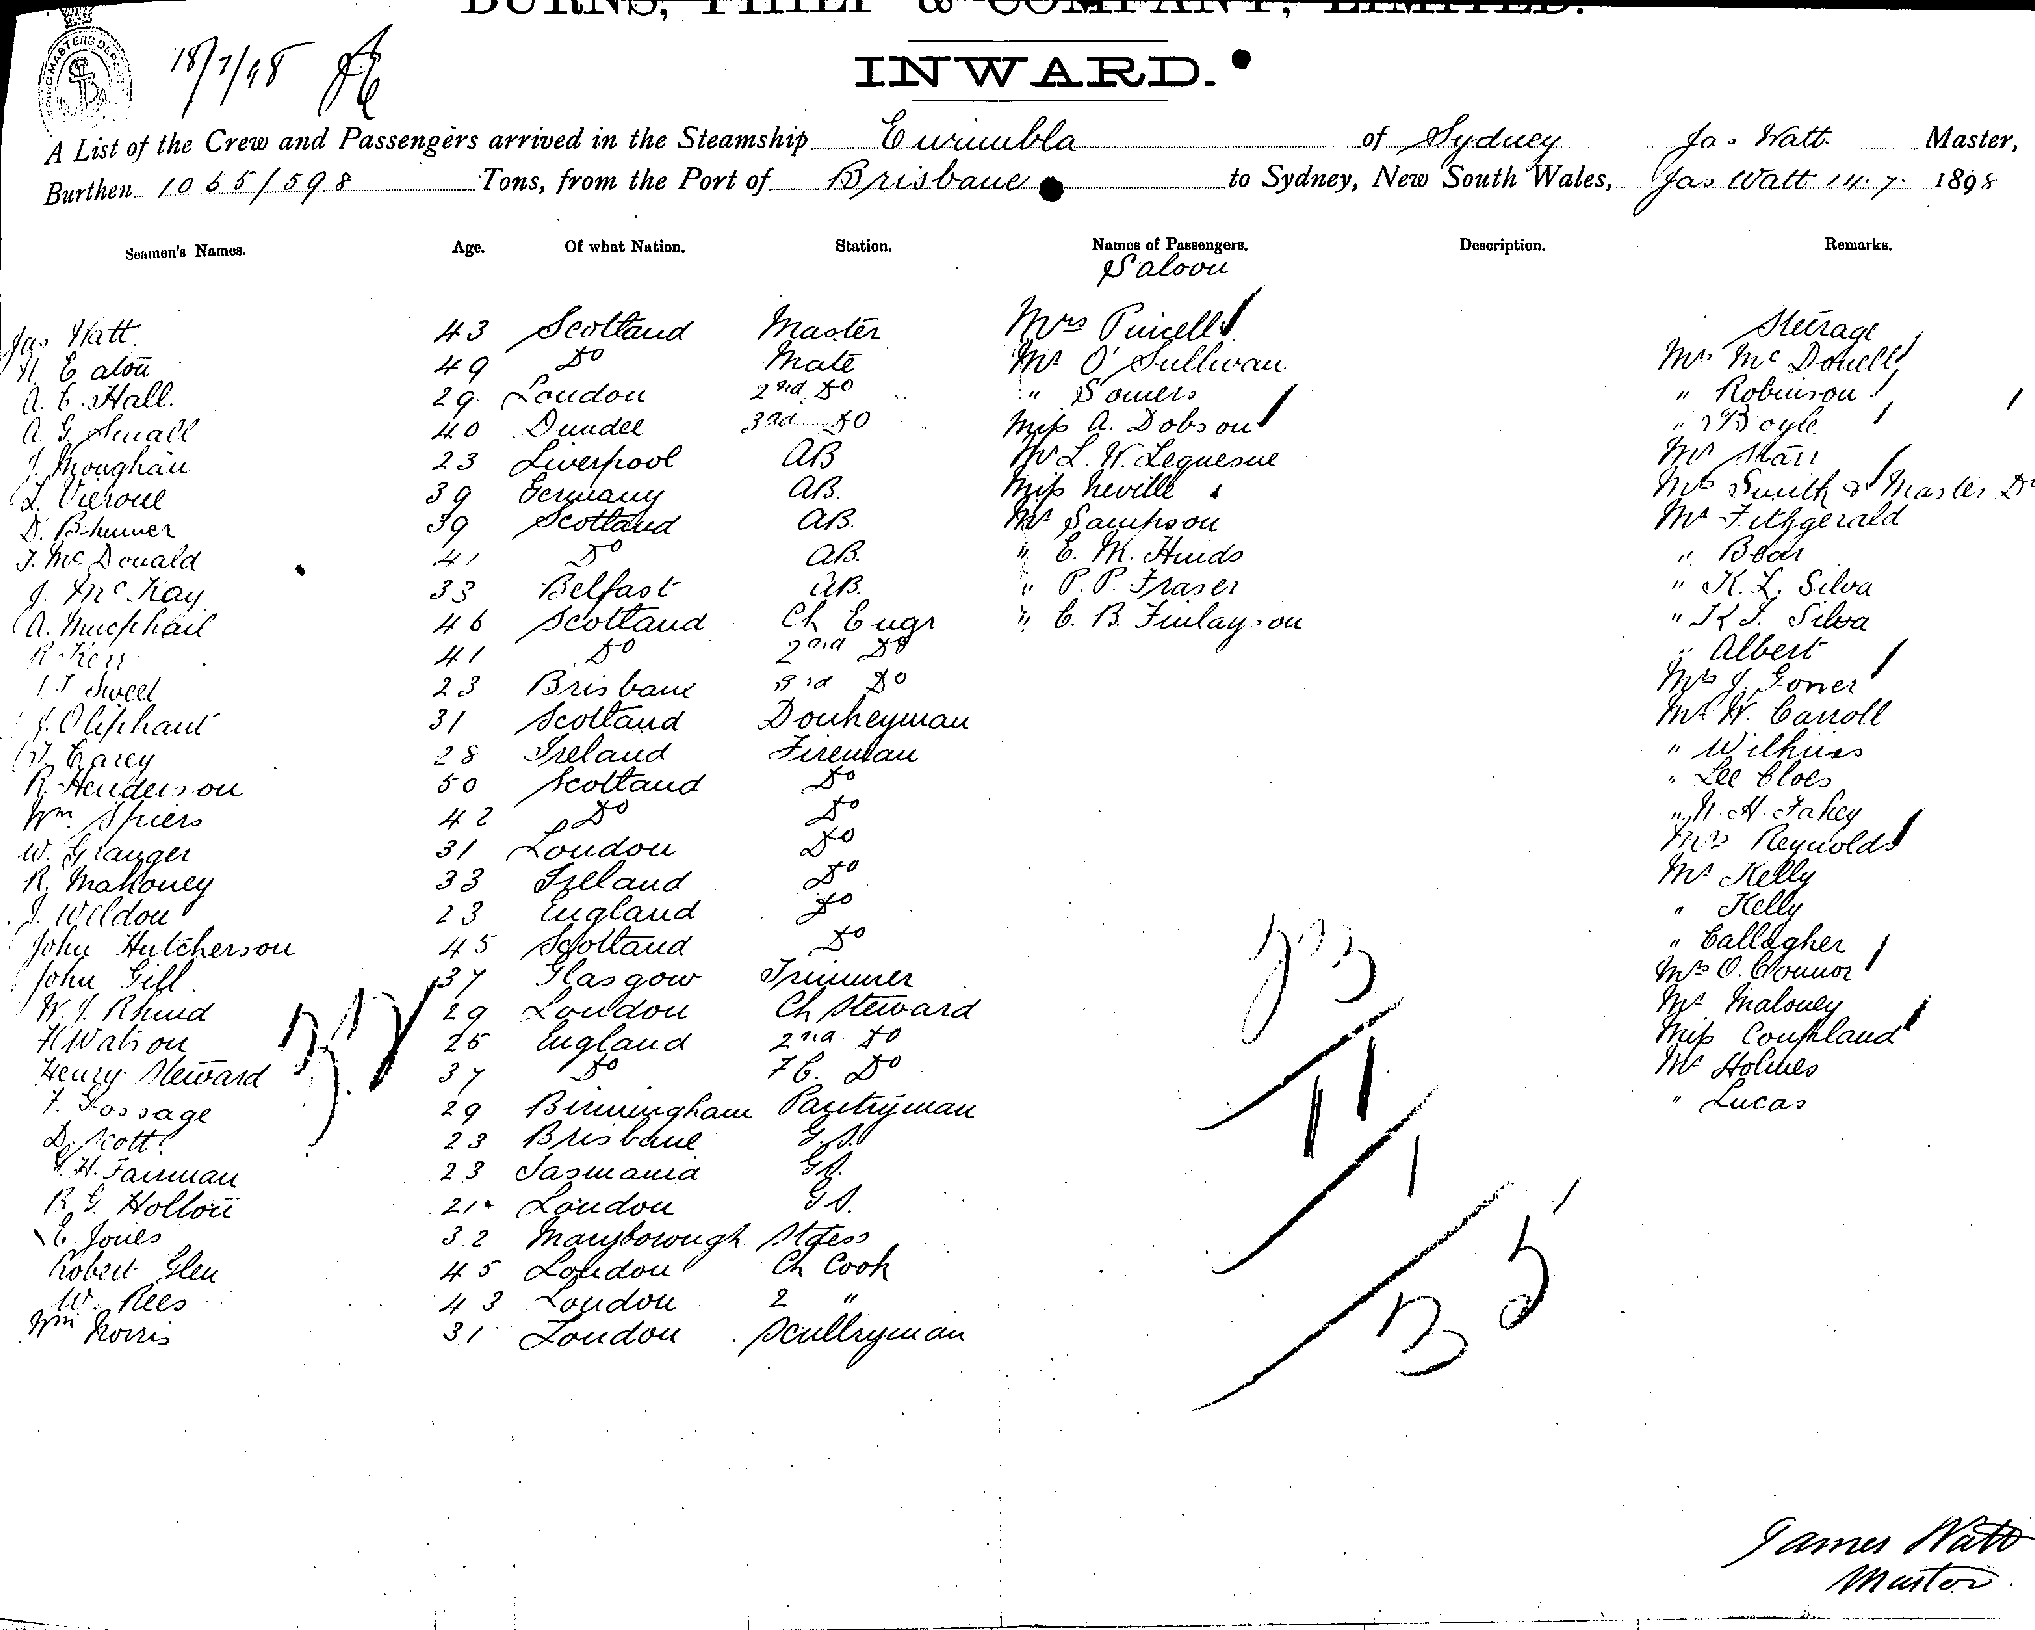 BURNS, PHILP & COMPANY, LIMITED.
INWARD.
18/7/98
A List of the Crew and Passengers arrived in the Steamship Eurimbla of Sydney Jas Watt. Master,
Burthen 1065/598 Tons, from the Port of Brisbane to Sydney, New South Wales, Jas Watt 14.7. 1898
Seamen's Names. Age. Of what Nation. Station. Names of Passengers. Description. Remarks.
Saloon
Jas Watt. 43 Scotland Master Mrs Purcell Steerage
Eaton 49 Do Mate Mr O'Sullivan Mrs McDonell
A. E. Hall. 29 London 2nd Do " Somers " Robinson
A. G. Small 40 Dundee 3rd Do Miss A. Dobson " Boyle
J. Moughan 23 Liverpool AB Mr L. W. Lequesne Mr Starr
L. Vieroue 39 Germany AB. Miss Neville Mrs Smith & Master Do
D. 39 Scotland AB. Mr Sampson Mr Fitzgerald
J. McDonald 41 Do AB. " E. M. Hinds " Boar
J. McKay 33 Belfast AB. " P. P. Fraser " K. L. Silva
A. Macphail 46 Scotland Ch Engr " C. B. Finlayson " K J. Silva
R Kerr 41 Do 2nd Do " Albert
J Sweet 23 Brisbane 3rd Do Mrs J. Goner
J. Oliphant 31 Scotland Donkeyman Mr W. Carroll
Carey 28 Ireland Fireman " Wilkins
R. Henderson 50 Scotland Do " Lee Cloes
Wm. Spiers 42 Do Do " H. Fahey
W. Granger 31 London Do Mrs Reynolds
R. Mahoney 33 Ireland Do Mr Kelly
J. Weldon 23 England Do " Kelly
John Hutcherson 45 Scotland Do " Callagher
John Gill. 37 Glasgow Trimmer Mrs O.Connor
W. J. Rhind 29 London Ch Steward Mr Maloney
H Watson 25 England 2nd Do Miss Coupland
Henry Steward 37 Do F C. Do Mr Holmes
F. Gossage 29 Birmingham Pantryman " Lucas
D. Scott. 23 Brisbane G.S.
H. Fairman 23 Tasmania G.S.
R. G. Hollow 21 London G.S.
E. Jones 32 Maryborough Stdess
Robert Glen 45 London Ch Cook
W. Rees 43 London 2 "
Wm Norris 31 London Scullryman
James Watt
Master